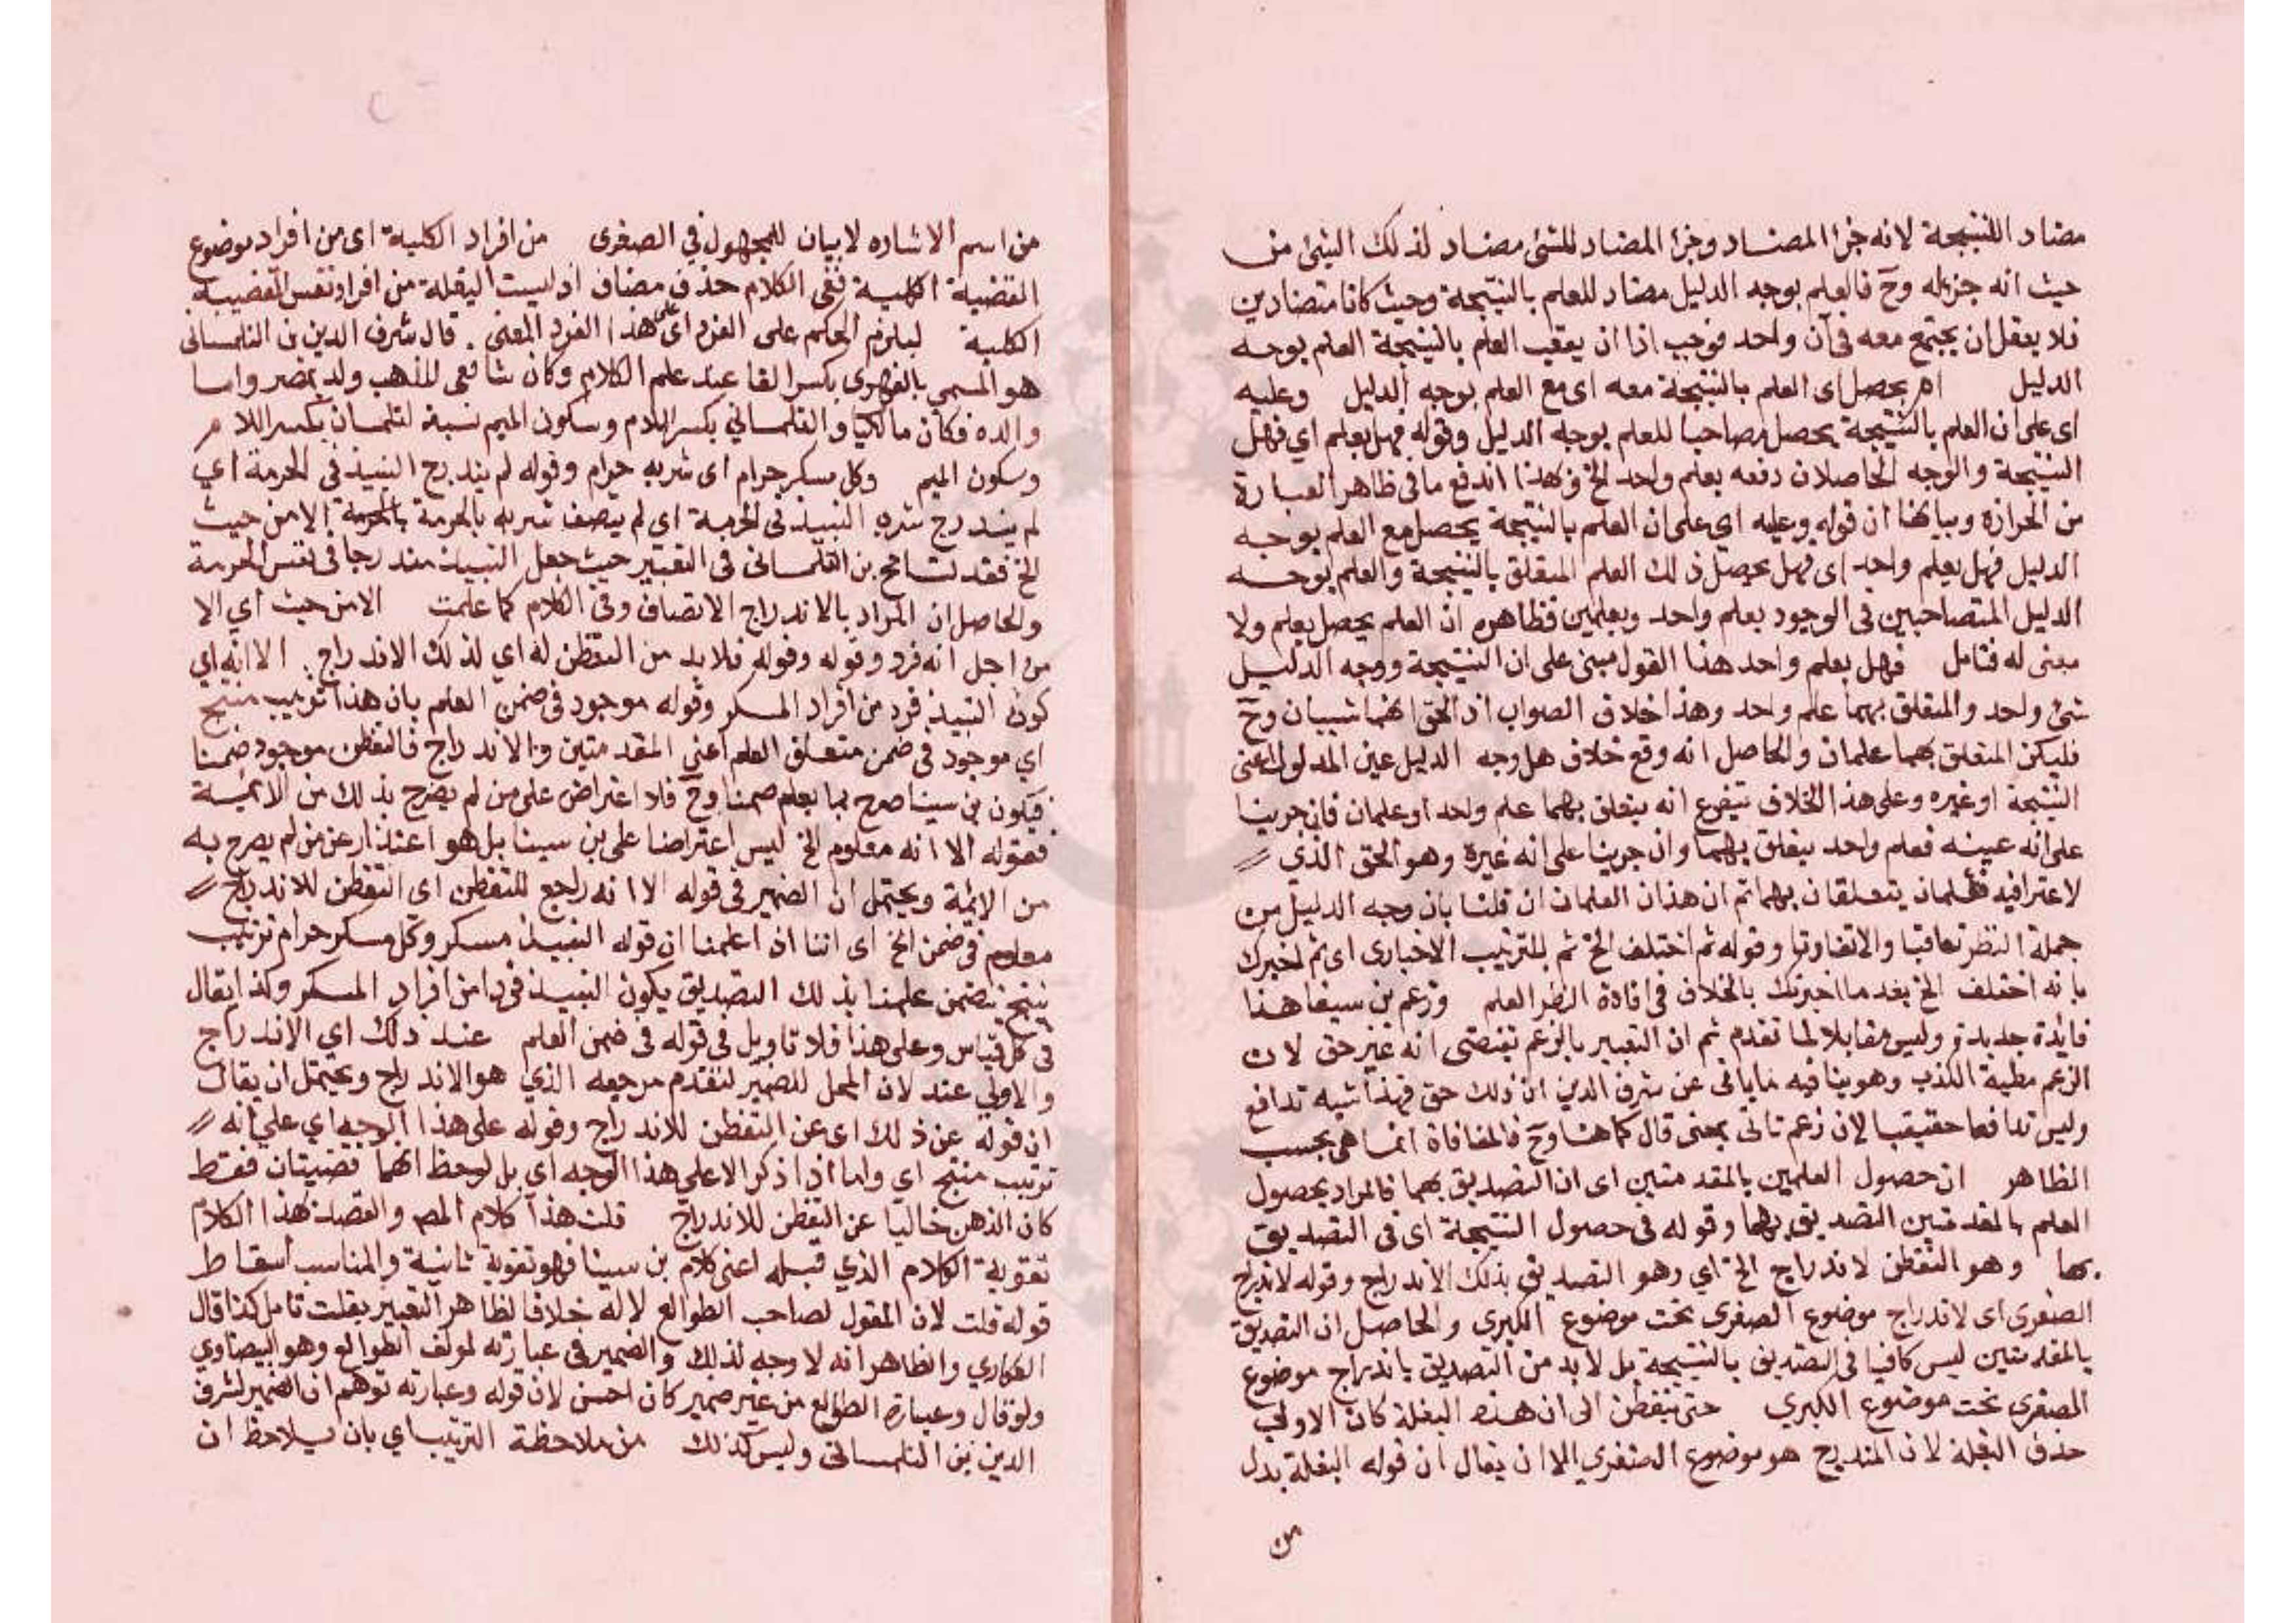 مضاد للنتيجة لانه جزا المضاد وجزا المضاد للشئ مضاد لذلك الشئ من
حيث انه جزء له وح فالعلم بوجه الدليل مضاد للعلم بالنتيجة وحيث كانا متضادين
فلا يعقل ان يجتمع معه في آن واحد فوجب اذا ان يعقب العلم بالنتيجة العلم بوجه
الدليل ام يحصل اى العلم بالنتيجة معه اى مع العلم بوجه الدليل وعليه
اى على ان العلم بالنتيجة يحصل مصاحبا للعلم بوجه الدليل وقوله فهل بعلم اي فهل
النتيجة والوجه الحاصلان دفعه بعلم واحد الخ وبهذا اندفع ما في ظاهر العبارة
من الحزازة وبيانها ان قوله وعليه اي على ان العلم بالنتيجة يحصل مع العلم بوجه
الدليل فهل بعلم واحد اى فهل يحصل ذلك العلم المتعلق بالنتيجة والعلم بوجه
الدليل المتصاحبين في الوجود بعلم واحد وبعلمين فظاهره ان العلم يحصل بعلم ولا
معنى له فتامل فهل بعلم واحد هذا القول مبنى على ان النتيجة ووجه الدليل
شئ واحد والمتعلق بهما علم واحد وهذا خلاف الصواب اذ الحق انهما شيان وح
فليكن المتعلق بهما علمان والحاصل انه وقع خلاف هل وجه الدليل عين المدلول اعنى
النتيجة او غيره وعلى هذا الخلاف يتفرع انه يتعلق بهما علم واحد او علمان فان جرينا
على انه عينه فعلم واحد يتعلق بهما وان جرينا على انه غيره وهو الحق الذي
لاعتراف فيه فعلمان يتعلقان بهما ثم ان هذان العلمان ان قلنا بان وجه الدليل من
جملة النظر تعاقبا والا تقارنا وقوله ثم اختلف الخ ثم للترتيب الاخبارى اى ثم اخبرك
بانه اختلف الخ بعد ما اخبرتك بالخلاف في افادة النظر العلم وزعم بن سينا هذا
فايدة جديدة وليس مقابلا لما تقدم ثم ان التعبير بالزعم يقتضى انه غير حق لان
الزعم مطية الكذب وهو ينافيه ما ياتى عن شرف الدين ان ذلك حق فهذا شبه تدافع
وليس تدافعا حقيقيا لان زعم تاتى بمعنى قال كما هنا وح فالمنافاة انما هي بحسب
الظاهر ان حصول العلمين بالمقدمتين اى ان التصديق بهما فالمراد بحصول
العلم بالمقدمتين التصديق بهما وقوله في حصول النتيجة اى في التصديق
بها وهو التفطن لاندراج الخ اي وهو التصديق بذلك الاندراج وقوله لاندراج
الصغرى اى لاندراج موضوع الصغرى تحت موضوع الكبرى والحاصل ان التصديق
بالمقدمتين ليس كافيا في التصديق بالنتيجة بل لابد من التصديق باندراج موضوع
الصغرى تحت موضوع الكبري حتى يتفطن الى ان هذه البغلة كان الاولى
حذف البغلة لان المندرج هو موضوع الصغرى الا ان يقال ان قوله البغلة بدل
من
من اسم الاشاره لا بيان للمجهول في الصغرى من افراد الكلية اى من افراد موضوع
القضية الكلية ففى الكلام حذف مضاف اذ ليست البغلة من افراد نفس القضية
الكلية ليلزم الحكم على الفرد اى على هذا الفرد المعنى . قال شرف الدين بن التلمسانى
هو المسمى بالفهرى بكسر الفا عند علم الكلام وكان شافعى المذهب ولد بمصر واما
والده فكان مالكيا والتلمساني بكسر اللام وسكون الميم نسبة لتلمسان بكسر اللام
وسكون الميم وكل مسكر حرام اى شربه حرام وقوله لم يندرج النبيذ في الحرمة اي
لم يندرج شربه النبيذ في الحرمة اى لم يتصف شربه بالحرمة بالحرمة الا من حيث
الخ فقد تسامح بن التلمسانى في التعبير حيث جعل النبيذ مندرجا في نفس الحرمة
والحاصل ان المراد بالاندراج الاتصاف وفي الكلام كما علمت الا من حيث اي الا
من اجل انه فرد وقوله وقوله فلابد من التفطن له اي لذلك الاندراج . الا انه اي
كون النبيذ فرد من افراد المسكر وقوله موجود في ضمن العلم بان هذا ترتيب منتج
اي موجود في ضمن متعلق العلم اعني المقدمتين والاندراج فالتفطن موجود ضمنا
فيكون بن سينا صرح بما يعلم ضمنا وح فلا اعتراض على من لم يصرح بذلك من الائمة
فقوله الا انه معلوم الخ ليس اعتراضا على بن سينا بل هو اعتذار عن من لم يصرح به
من الائمة ويحتمل ان الضمير في قوله الا انه راجع للتفطن اى التفطن للاندراج
معلوم في ضمن الخ اى اننا اذا علمنا ان قوله النبيذ مسكر وكل مسكر حرام ترتيب
ينتج يتضمن علمنا بذلك التصديق بكون النبيذ فردا من افراد المسكر وكذا يقال
في كل قياس وعلى هذا فلا تاويل في قوله في ضمن العلم عند ذلك اي الاندراج
والاولي عند لان المحل للضمير لتقدم مرجعه الذي هو الاندراج ويحتمل ان يقال
ان قوله عن ذلك اى عن التفطن للاندراج وقوله على هذا الوجه اي على انه
ترتيب منتج اي واما اذا ذكر الا على هذا الوجه اي بل لوحظ انهما قضيتان فقط
كان الذهن خاليا عن التفطن للاندراج قلت هذا كلام المص والقصد بهذا الكلام
تقوية الكلام الذي قبله اعنى كلام بن سينا فهو تقوية ثانية والمناسب اسقاط
قوله قلت لان المقول لصاحب الطوالع لا له خلافا لظاهر التعبير بقلت تامل كذا قال
العكاري والظاهر انه لا وجه لذلك والضمير في عبارته لمولف الطوالع وهو البيضاوي
ولو قال وعبارة الطوالع من غير ضمير كان احسن لان قوله وعبارته توهم ان الضمير لشرف
الدين بن التلمسانى وليس كذلك من ملاحظة الترتيب اي بان يلاحظ ان